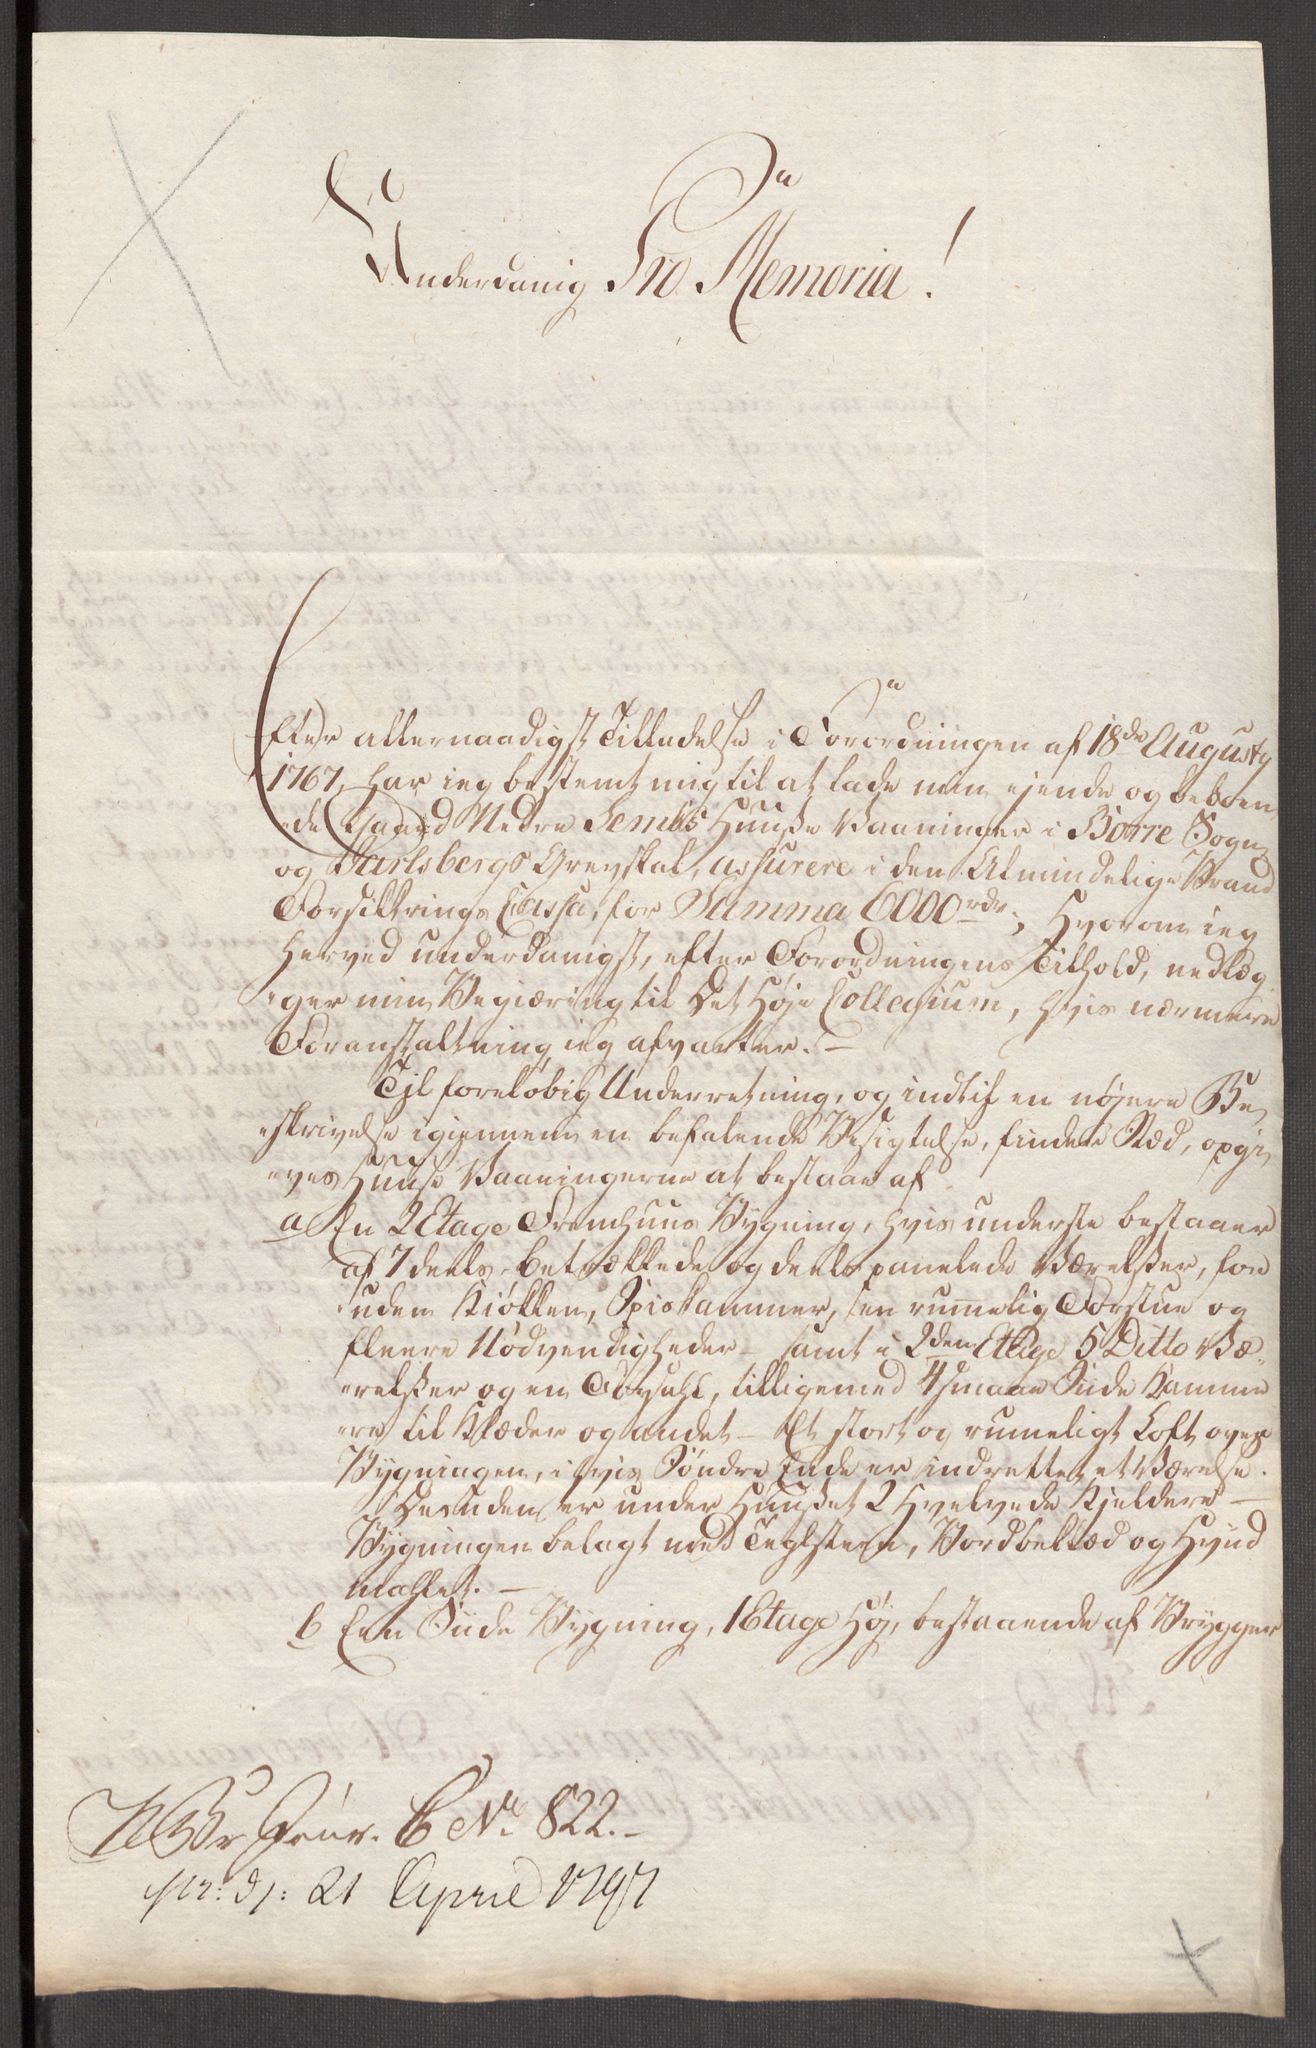 Underdanig Pro Memoria!
Efter allernaadigst Tilladelse i Forordningen af 18de Augusty
1767, har ieg bestemt mig til at lade min ejende og beboen
de Gaard Nedre Sembs Huuse Vaaninger i Borre Sogn
og Jarlsbergs Grevskab, assurere i den Almindelige Brand
Forsikrings Cassa, for Summa 6000 rdr; Hvorom ieg
herved underdanigst, efter Forordningens Tilhold, nedlæg
ger min Begiæring til Det Høje Collegium, hvis nærmere
Foranstaltning ieg afvarter. —
Til foreløbig Underretning, og indtil en nøjere Be
skrivelse igiennem en befalende Besigtelse, finder Stæd, opgi
ves Huuse Vaaningerne at bestaae af
a En 2 Etage Fremhuus Bygning, hvis underste bestaaer
af 7 deels betrækkede og deels panelede Værelser, for
uden Kiøkken, Spiskammer, en rumelig Forstue og
fleere Nødvendigheder — samt i 2den Etage 5 Ditto Væ
relser og en Sahl, tilligemed 4 smaae Side Kamme
re til Klæder og andet — Et stort og rumeligt Loft over
Bygningen, i hvis Søndre Ende er indrettet et Værelse.
Desuden er under Huuset 2 Hvelvede Kieldere —
Bygningen belagt med Teglsteen, Bordbeklæd og Hvid
mahlet. —
b Een Siide Bygning, 1 Etage Høj, bestaaende af Brygger
Jour. C No. 822. —
pr: d: 21 April 1797